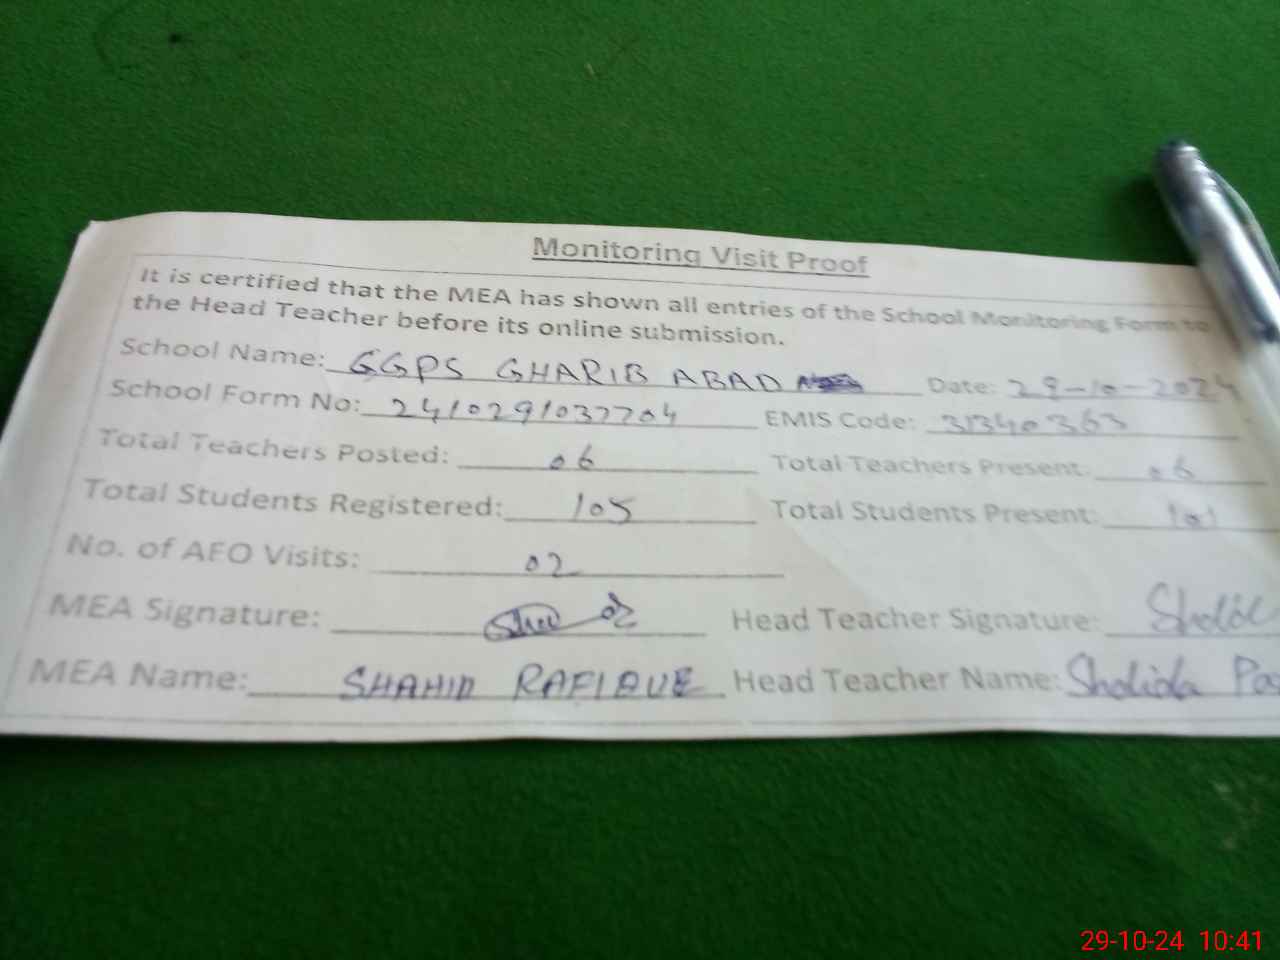 Monitoring Visit Proof
It is certified that the MEA has shown all entries of the School Monitoring Form to
the Head Teacher before its online submission.
School Name: GGPS GHARIB ABAD Date: 29-10-2024
School Form No: 2410291037704 EMIS Code: 31340363
Total Teachers Posted: 06 Total Teachers Present: 06
Total Students Registered: 105 Total Students Present: 101
No. of AEO Visits: 02
MEA Signature: Head Teacher Signature:
MEA Name: SHAHID RAFIQUE Head Teacher Name:
29-10-24 10:41